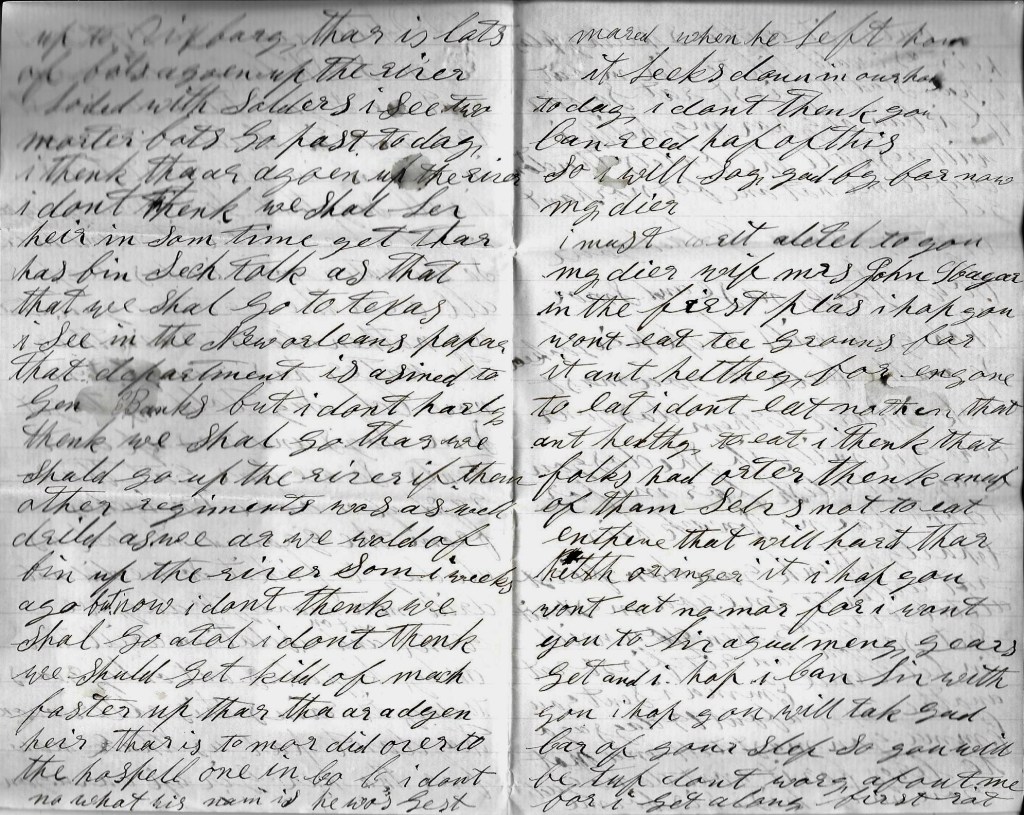 up to Vixburg, thar is lots
of bots agoen up the river
loded with Solders i See two
morter bots Go past to day,
i thenk tha ar agoen up the river
i dont thenk we shal ler
heir in Som time yet thar
has bin Sech talk as that
that we shal Go to texas
i See in the New orleans papar
that department is asined to
Gen Banks but i dont hardy
thenk we Shal Go thar we
shald go up the river if them
other regiments was as well
drild as we ar we wold of
bin up the river Som i weeks
ago but now i dont thenk we
shal Go atol i dont thenk
we shuld Get kild of mach
faster up thar tha ar adyen
heir thar is to mor did over to
the hospell one in Co C i dont
no what his nam is he wos Gest
mared when he left hom
it leeks down in our
to day, i dont thenk you
Can reed haf of this
So i will Say gud by for now
my dier
i must writ aletel to you
my dier wif mrs John Hagar
in the first plas i hop you
wont eat tee Grouns for
it ant helthey, for eny one
to eat i dont eet nothen that
ant helthy to eat i thenk that
folks had orter thenk anuf
of tham Selvs not to eat
enthene that will hurt thar
helth or inger it i hop you
wont eat no mor for i want
you to liv agud meny years
yet and i hop i Can liv with
you i hop you will tak gud
Car of your Self So you will
be tuf dont wory about me
for i Get along first rat